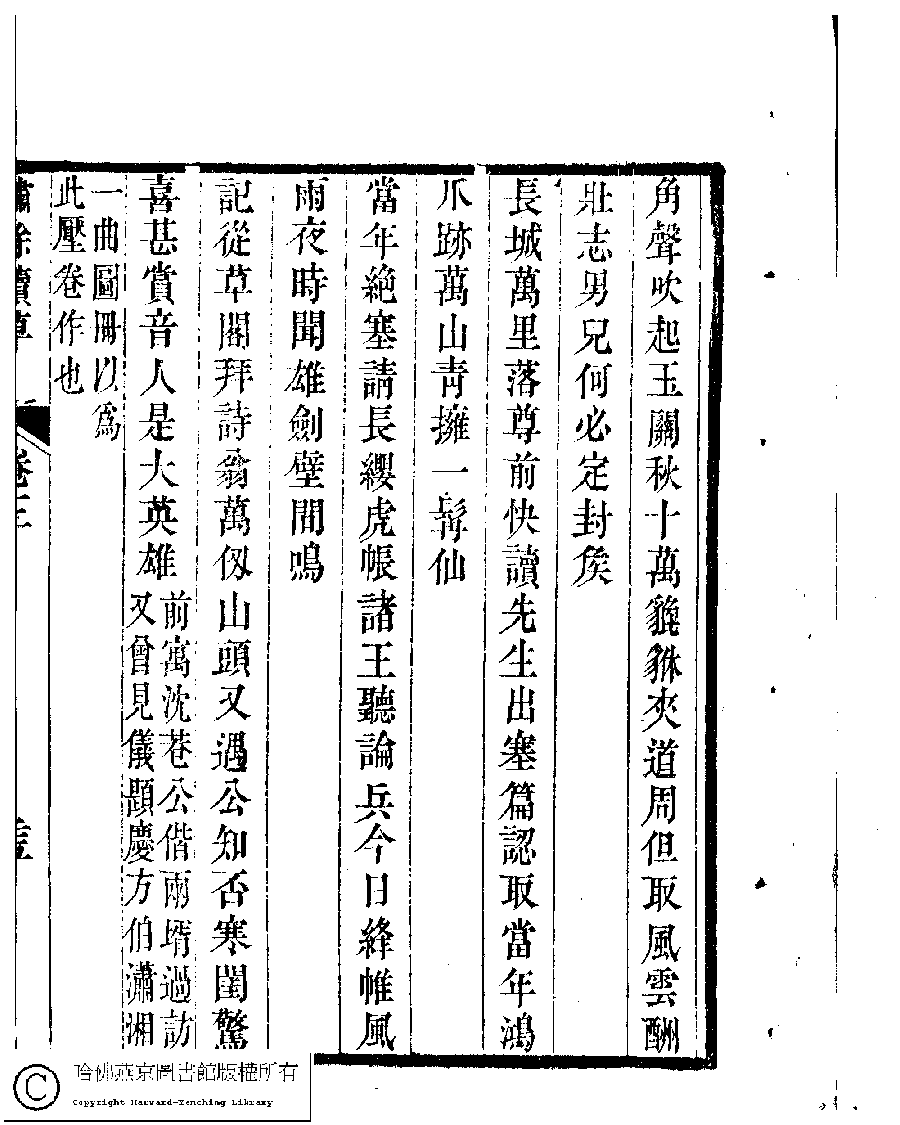 角聲吹起玉關秋十萬貔貅夾道周但取風雲酬
壯志男兒何必定封矦
長城萬里落尊前快讀先生出塞篇認取當年鴻
爪跡萬山青擁一髯仙
當年絶塞請長纓虎帳諸王聽論兵今日絳帷風
雨夜時聞雄劍壁間鳴
記從草閣拜詩翁萬仭山頭又遇公知否寒閨驚
喜甚賞音人是大英雄
前寓沈巷公偕雨壻過訪
又曾見儀題慶方伯瀟湘
一曲圖冊以爲
此壓卷作也
續草
卷三
Copyright Harvard-Yenching Library
哈佛燕京圖書館版權所有